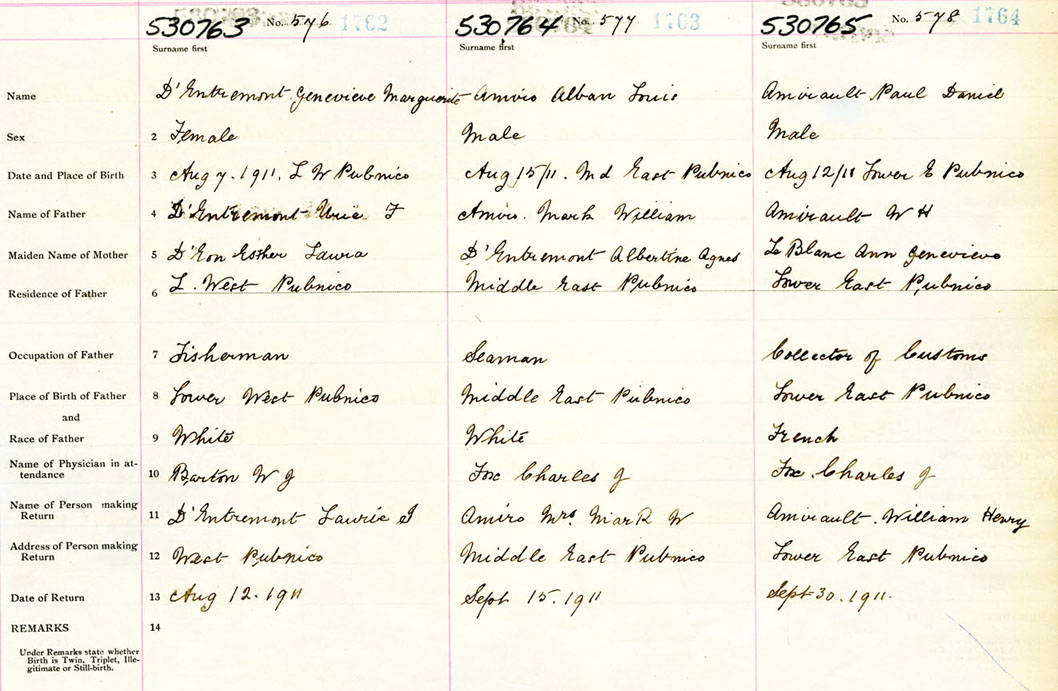 530763 No. 576 1762 530764 No. 577 1763 530765 No. 578 1764
Surname first Surname first Surname first
Name D'Entremont Genevieve Marguerite Amiro Alban Louis Amirault Paul Daniel
Sex 2 Female Male Male
Date and Place of Birth 3 Aug 7. 1911. L W Pubnico Aug 15/11. Md East Pubnico Aug 12/11 Lower E Pubnico
Name of Father 4 D'Entremont F Amiro. Mark William Amirault W H
Maiden Name of Mother 5 D'Eon Esther Laura D'Entremont Albertine Agnes Le Blanc Ann Genevieve
Residence of Father 6 L. West Pubnico Middle East Pubnico Lower East Pubnico
Occupation of Father 7 Fisherman Seaman Collector of Customs
Place of Birth of Father 8 Lower West Pubnico Middle East Pubnico Lower East Pubnico
and
Race of Father 9 White White French
Name of Physician in at-
tendance 10 Barton W J Fox Charles J Fox. Charles J
Name of Person making
Return 11 D'Entremont Laurie Amiro Mrs Mark W Amirault. William Henry
Address of Person making
Return 12 West Pubnico Middle East Pubnico Lower East Pubnico
Date of Return 13 Aug 12. 1911 Sept 15. 1911 Sept 30. 1911.
REMARKS 14
Under Remarks state whether
Birth is Twin, Triplet, Ille-
gitimate or Still-birth.